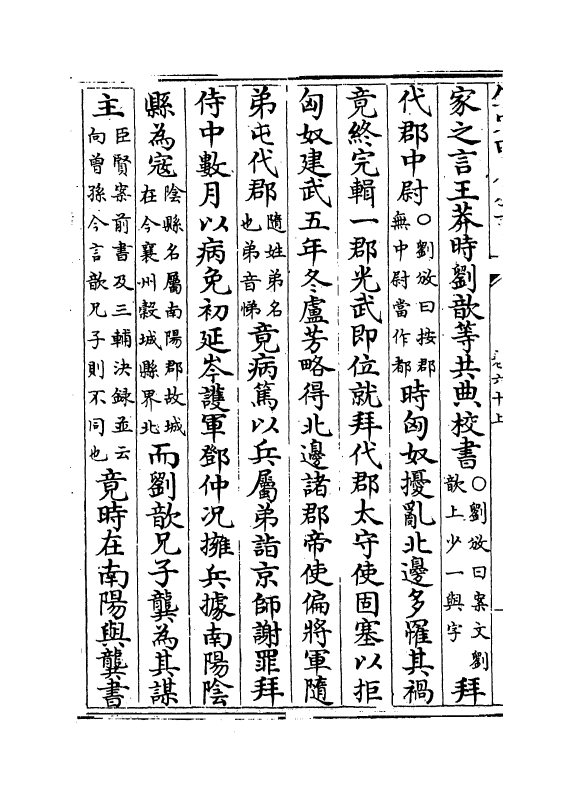 家之言王莽時劉歆等共典校書○劉攽曰案文劉歆上少一與字拜
代郡中尉○劉攽曰按郡無中尉當作都時匈奴擾亂北邊多罹其禍
竟終完輯一郡光武即位就拜代郡太守使固塞以拒
匈奴建武五年冬盧芳略得北邊諸郡帝使偏將軍隨
弟屯代郡隨姓弟名也弟音悌竟病篤以兵屬弟詣京師謝罪拜
侍中數月以病免初延岑護軍鄧仲况擁兵據南陽陰
縣為寇陰縣名屬南陽郡故城在今襄州糓城縣界北而劉歆兄子龔為其謀
主臣賢案前書及三輔決録並云向曾孫今言歆兄子則不同也竟時在南陽與龔書